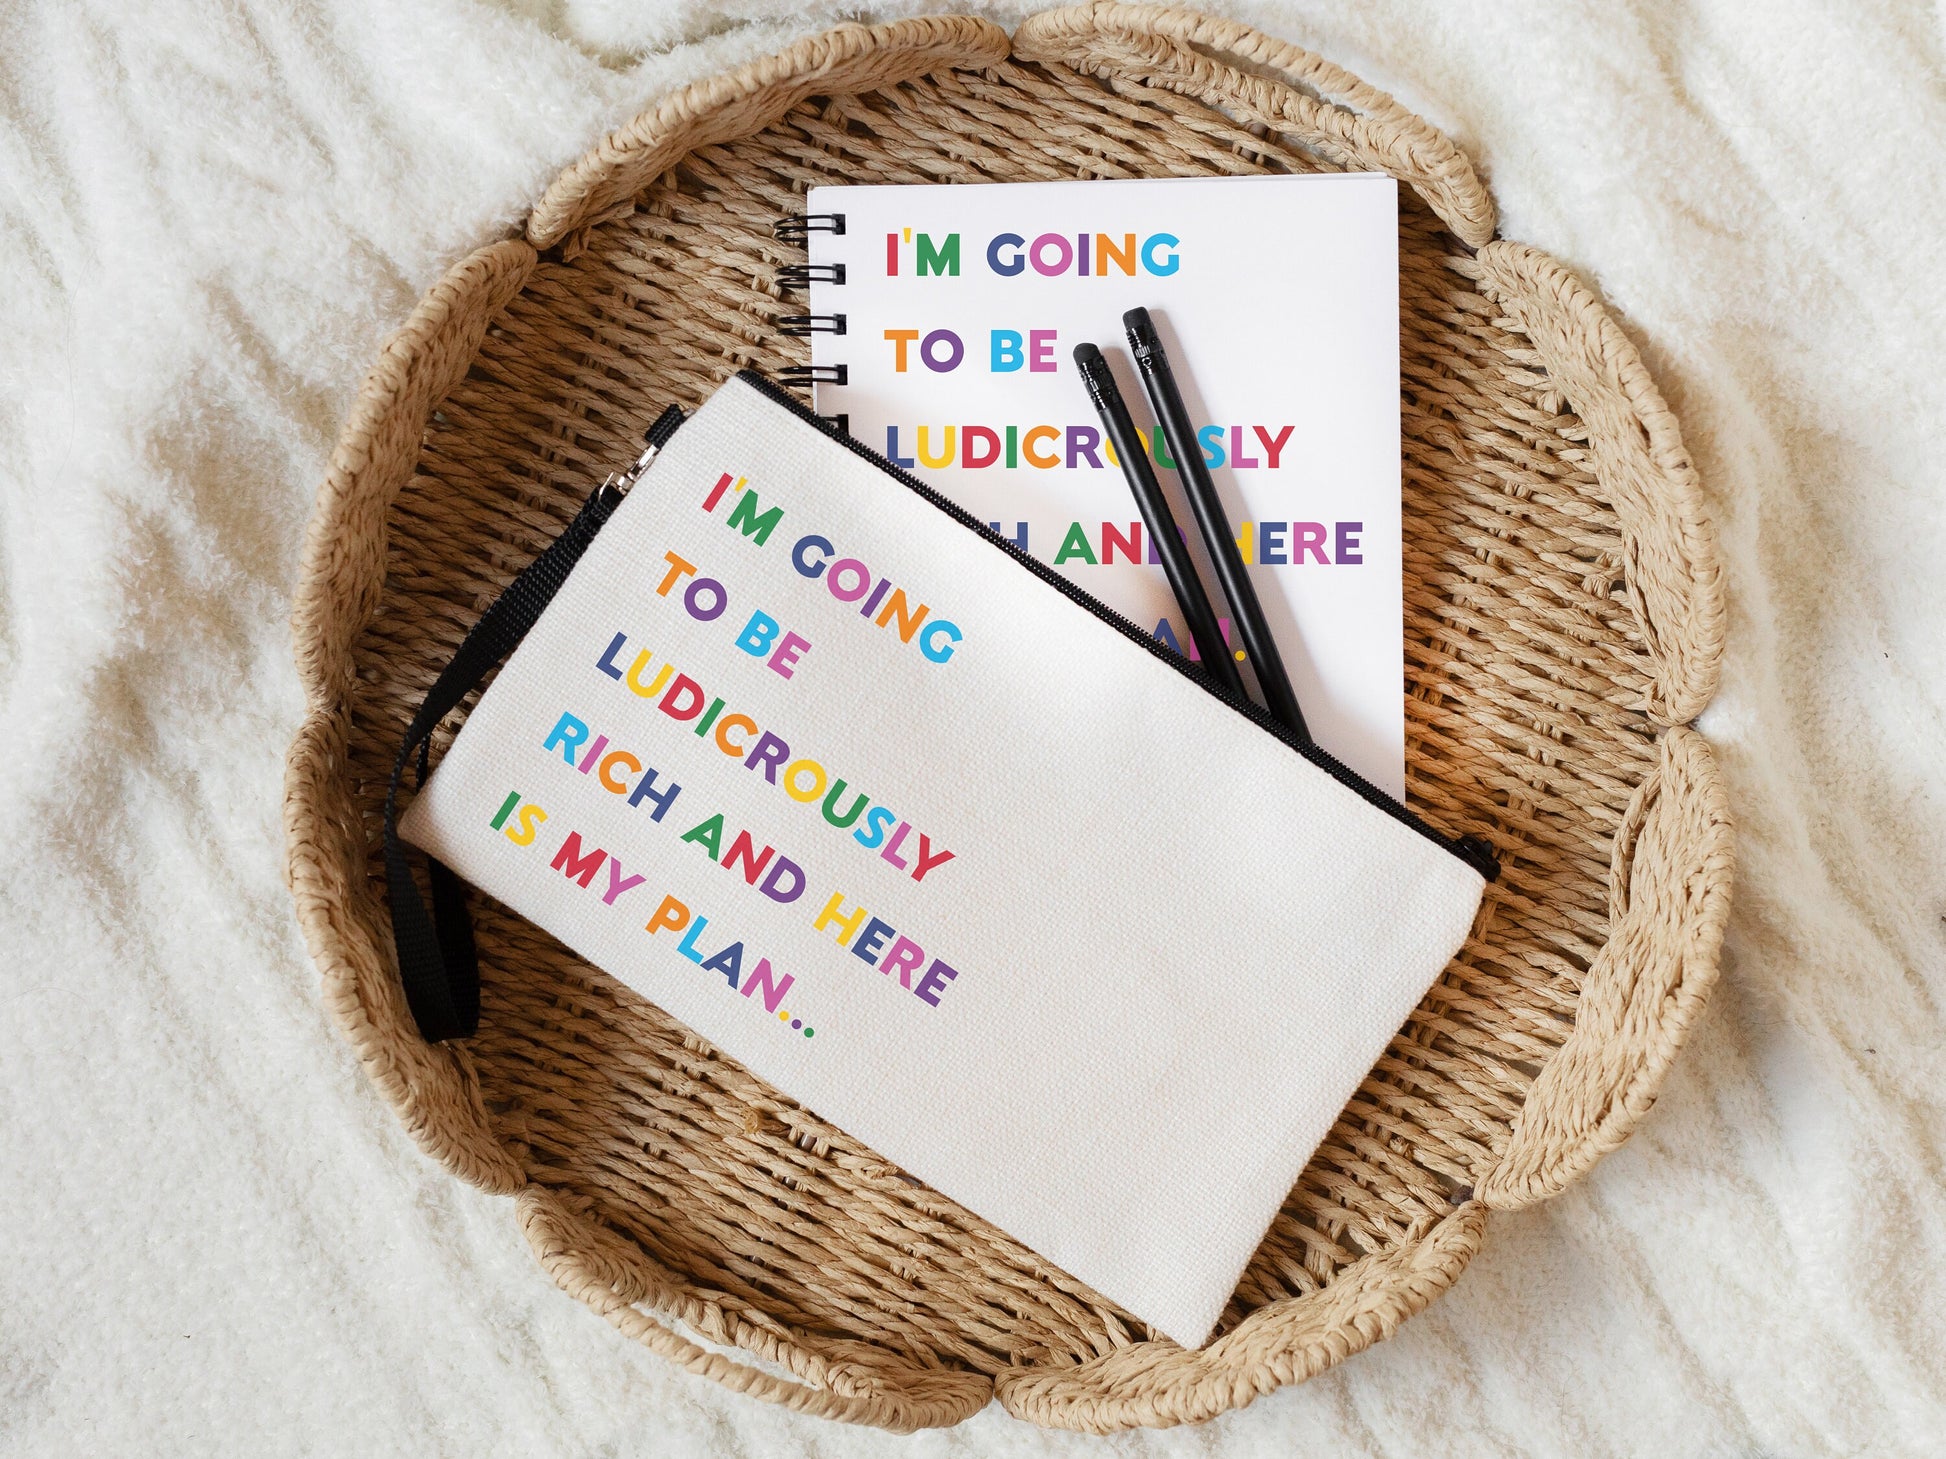 I'M GOING
TO BE
LUDICROUSLY
AND HERE
I'M GOING
TO BE
LUDICROUSLY
RICH AND HERE
IS MY PLAN...